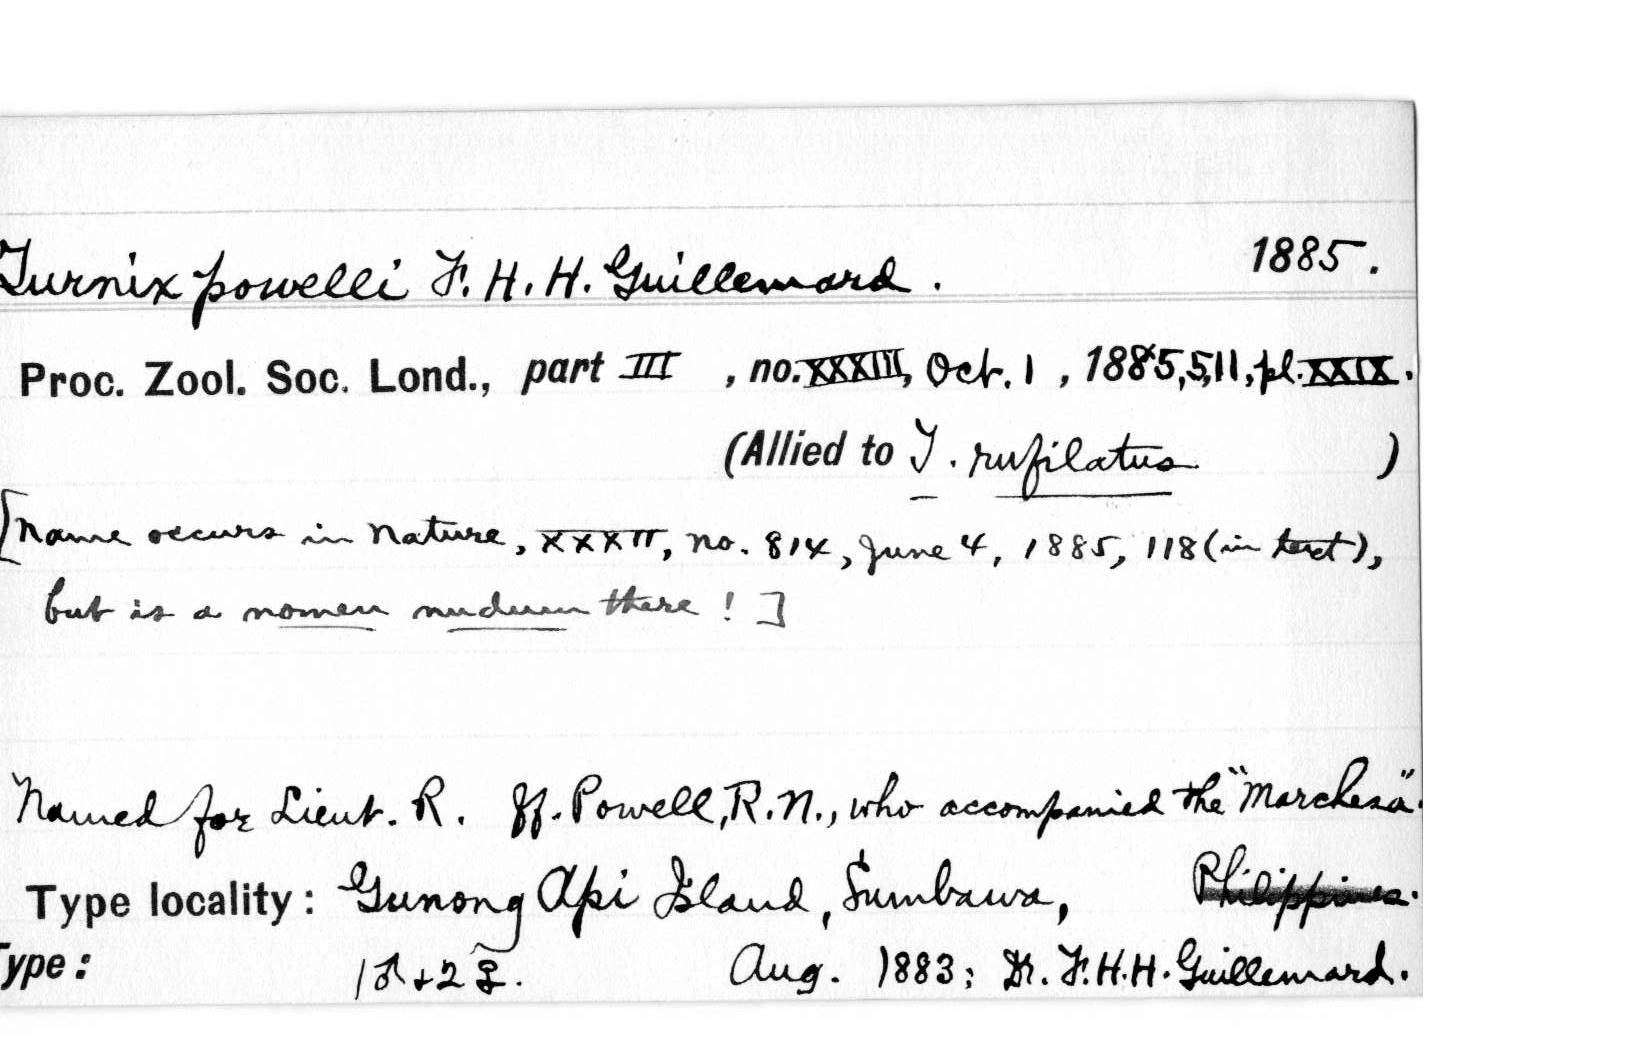 Turnix powelli F. H. H. Guillemard. 1885.
Proc. Zool. Soc. Lond., part III, no. XXXIII, Oct. 1, 1885, 511, pl. XXIX.
(Allied to T. rufilatus)
[Name occurs in Nature, XXXII, no. 814, June 4, 1885, 118 (in text),
but is a nomen nudum there! ]
Named for Lieut. R. ff. Powell, R.N., who accompanied the "Marchesa".
Type locality: Gunong Api Island, Sumbawa, Philippines.
Type: 1♂+2♀. Aug. 1883; Dr. F.H.H. Guillemard.